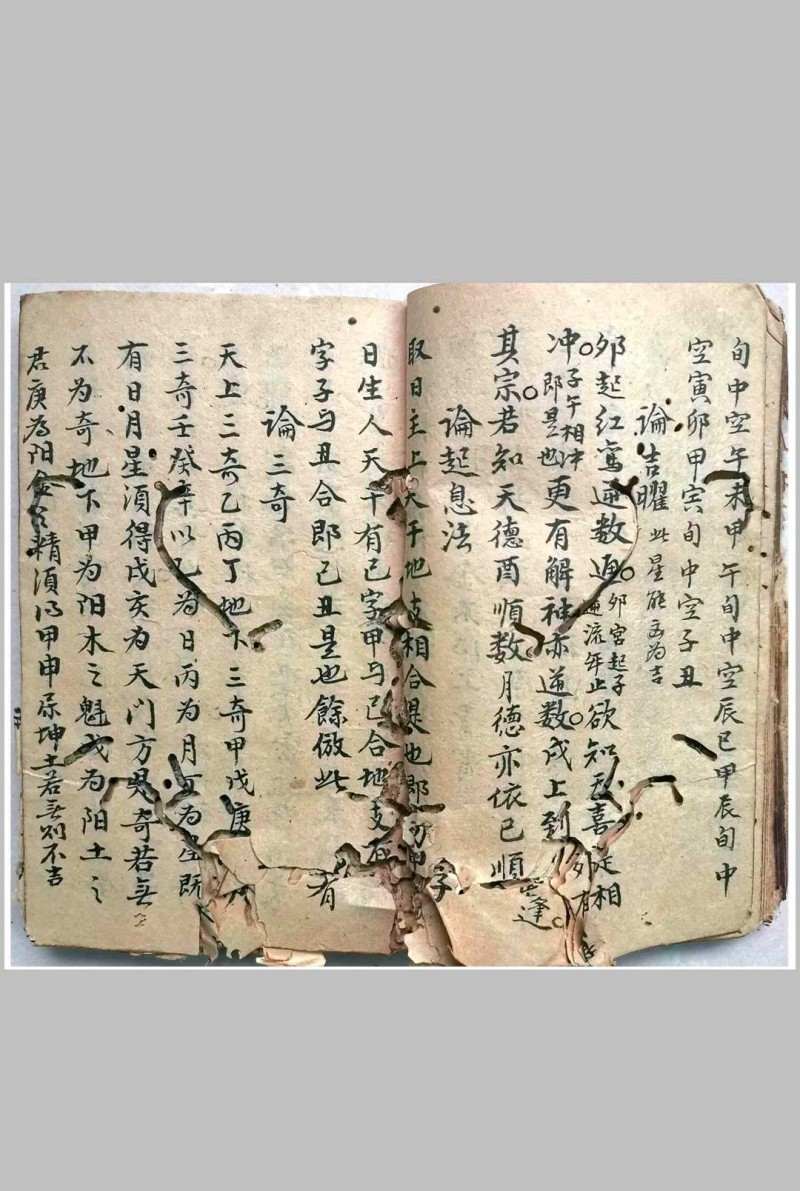 旬中空午未甲午旬中空辰巳甲辰旬中
空寅卯甲寅旬中空子丑
論吉曜 此星能 為吉
夘起紅鸞逆数通 夘宮起子 逆流年止 欲知天喜 相
冲 子午相冲 即是也 更有解神亦逆数戌上到 逢
其宗若知天德酉順数月德亦依巳順
論起息法
取日主上天干地支相合是也即 甲 字
日生人天干有己字甲与己合地支 有
字子与丑合即己丑是也餘倣此
論三奇
天上三奇乙丙丁地下三奇甲戊庚
三奇壬癸辛以乙為日丙為月丁為星既
有日月星須得戌亥為天門方見奇若無
不为奇地下甲为阳木之魁戊为阳土之
君庚為阳金之精須得甲申 坤土若無則不吉